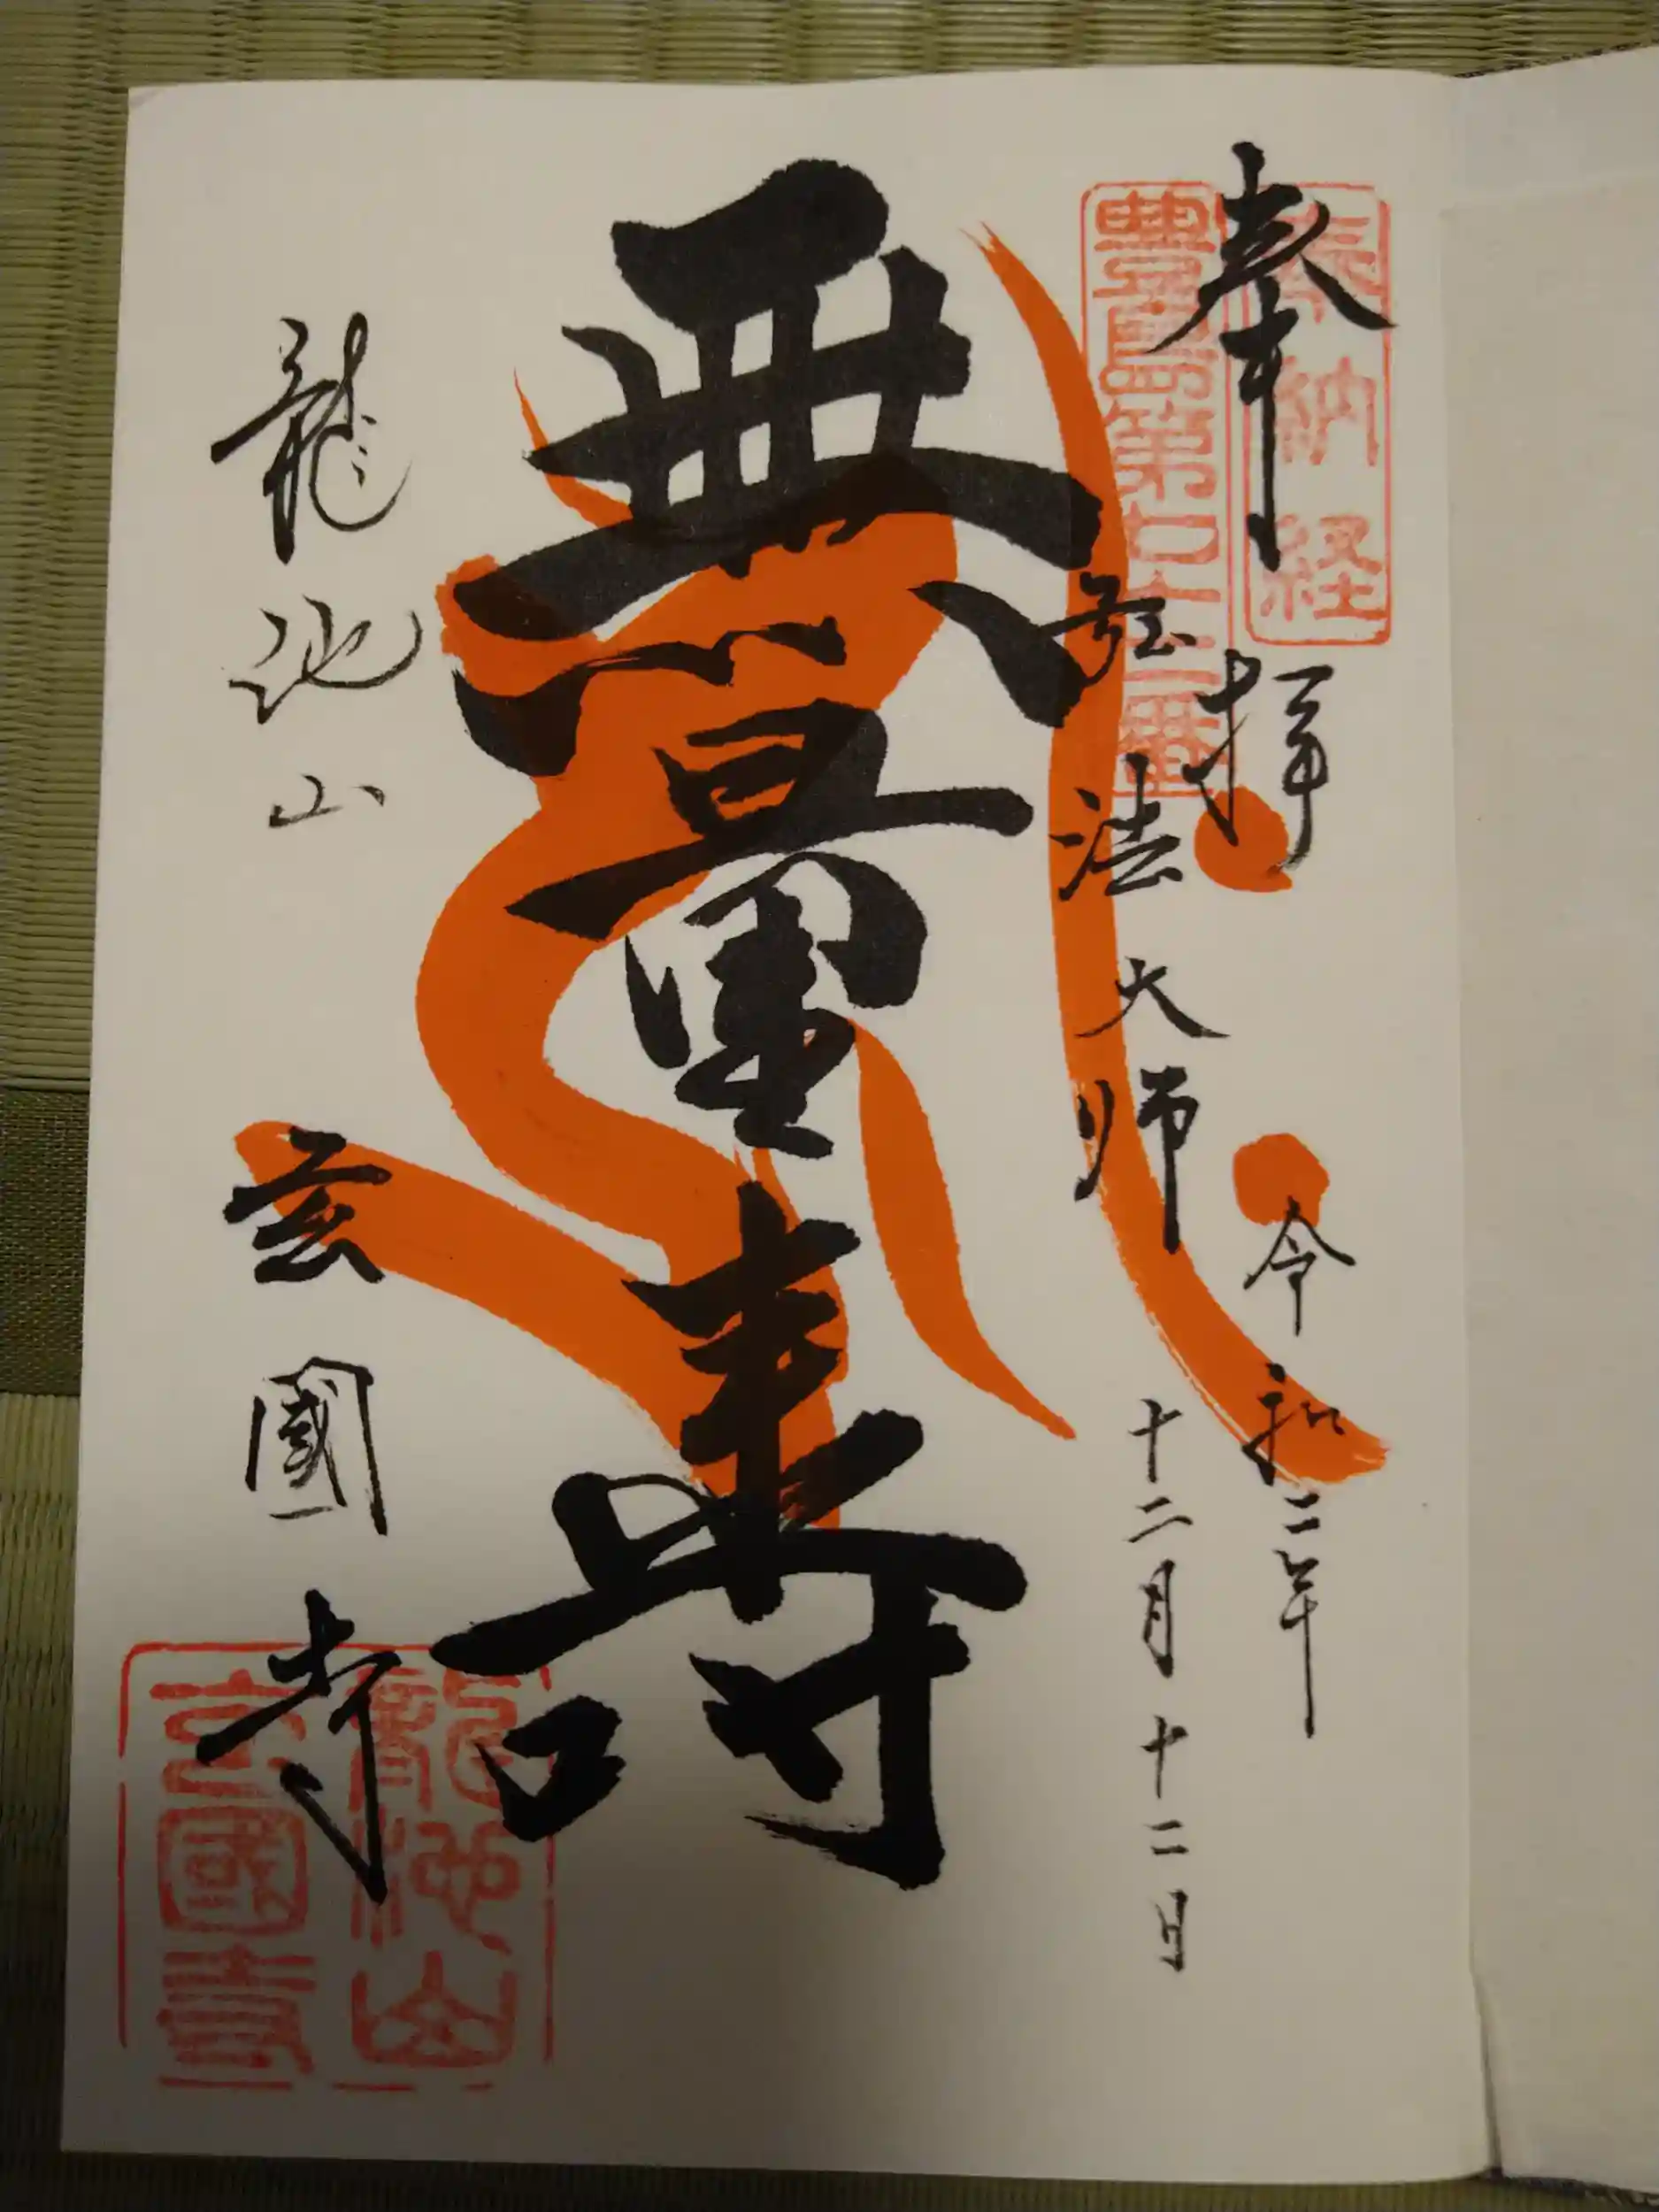 奉拝
奉納経
令和二年
豊島第七十三番
弘法大師
十二月十二日
無量壽
龍池山
玄國寺
龍池山
玄國寺